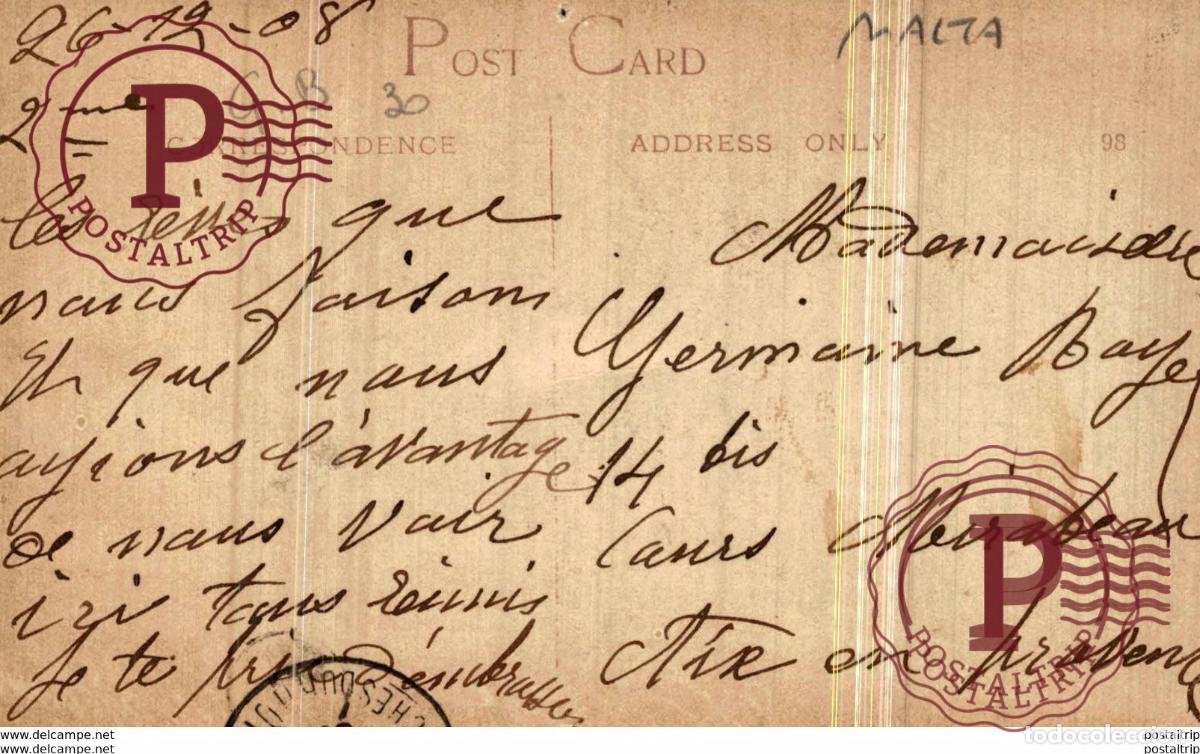 26-12-08
POST CARD
MALTA
G B 30
2me
CORRESPONDENCE
ADDRESS ONLY
98
les que
nous faisons
Et que nous
ayions l'avantage
de nous voir
ici tous réunis
Je te prie d'embrasser
Mademoiselle
Germaine Baye
14 bis
Cours Mirabeau
Aix en provence
P
POSTALTRIP
P
POSTALTRIP
todocoleccion
www.delcampe.net
postaltrip
www.delcampe.net
postaltrip